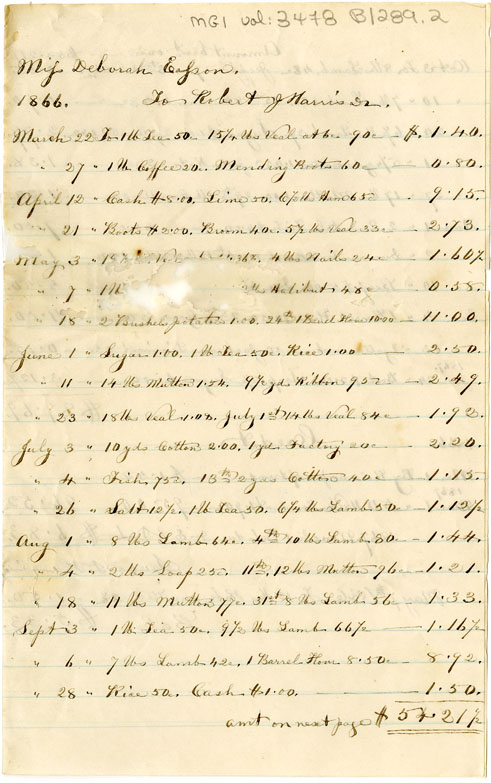 MG1 vol: 3478 B/289.2
Miss Deborah Easson.
1866. To Robert J Harris Dr.
March 22 To 1 lb Tea 50c 15¼ lbs Veal at 6c. 90c — $. 1.40.
" 27 " 1 lb Coffee 20c. Mending Boots 60c — 0.80.
April 12 " Cash $8.00. Lime 50. 6½ lb Ham 65c — 9.15.
" 21 " Boots $2.00. Broom 40c. 5½ lbs Veal 33c — 2.73.
May 3 " Veal 4 lbs Nails 24c — 1.60½
" 7 " 1 lb lbs Halibut 48c — 0.58.
" 18 " 2 Bushels potatoes 1.00. 24th 1 Barrel Flour 10.00 — 11.00.
June 1 " Sugar 1.00. 1 lb Tea 50c. Rice 1.00 — 2.50.
" 11 " 14 lbs Mutton 1.54. 9½ yds Ribbon 95c — 2.49.
" 23 " 18 lbs Veal 1.08. July 1st 14 lbs Veal 84c — 1.92.
July 3 " 10 yds Cotton 2.00. 1 yd Factory 20c — 2.20.
" 4 " Fish 75c. 13th 2 yds Cotton 40c — 1.15.
" 26 " Salt 12½. 1 lb Tea 50. 6¼ lbs Lamb 50c — 1.12½
Aug 1 " 8 lbs Lamb 64c. 4th 10 lbs Lamb 80c — 1.44.
" 4 " 2 lbs Soap 25c. 11th, 12 lbs Mutton 96c — 1.21.
" 18 " 11 lbs Mutton 77c. 31st 8 lbs Lamb 56c — 1.33.
Sept 3 " 1 lb Tea 50c. 9½ lbs Lamb 66½ — 1.16½
" 6 " 7 lbs Lamb 42c. 1 Barrel Flour 8.50 — 8.92.
" 28 " Rice 50c. Cash $1.00. — 1.50.
amt on next page $ 54.21½